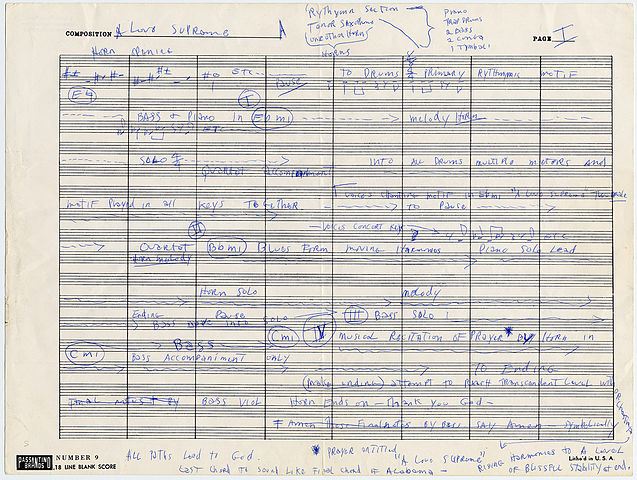 COMPOSITION A Love Supreme
Rythymn Section
Piano
Trap Drums
2 Bass
2 Conga
1 Timbali
Tenor Saxophone
Horns
PAGE I
Horn
ETC
Pause
TO DRUMS
PRIMARY RYTHYMIC MOTIF
E4
I
BASS + Piano in Eb mi
ETC
melody Horn
SOLO
Quartet Accompaniment
INTO ALL DRUMS MULTIPLE METERS And
voices chanting motif in Ebmi "A Love Supreme"
motif Played in all Keys Together
TO Pause
II
VOICES CONCERT KEY
Quartet Bbmi Blues Form moving Harmonies Piano Solo Lead
Horn melody
Horn Solo
melody
Ending Pause
Bass mode into SOLO
III BASS SOLO
Cmi IV MUSICAL RECITATION OF PRAYER * BY HORN in
Cmi
BASS
BASS ACCOMPANIMENT ONLY
To Ending
(make ending) attempt to REACH Transcendent Level with
BY BASS VIOL
Horn Ends on - Thank you God -
Amen These Final notes By Bass SAY Amen - Symbolically
PASSANTINO BRANDS
NUMBER 9
18 LINE BLANK SCORE
All Paths Lead to God.
Last Chord to Sound Like Final Chord of Alabama -
* PRAYER entitled
"A Love Supreme"
RISING Harmonies to A Level
OF BLISSFUL Stability at end.
Litho'd in U.S.A.